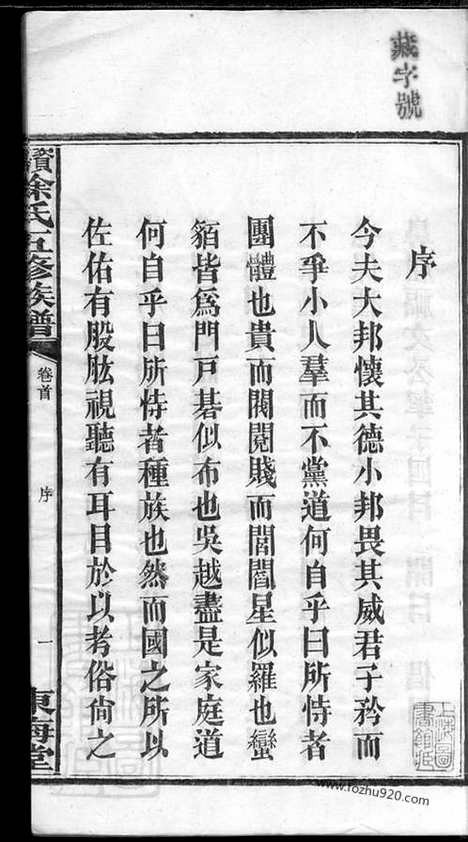 藏字號
序
今夫大邦懷其德小邦畏其威君子矜而
不爭小人羣而不黨道何自乎曰所恃者
團體也貴而閥閱賤而閭閻星似羅也蠻
貊皆爲門戸碁似布也吳越盡是家庭道
何自乎曰所恃者種族也然而國之所以
佐佑有股肱視聽有耳目於以考俗尙之
徐氏五修族譜
卷首
序
一
東海堂
www.fozhu920.com